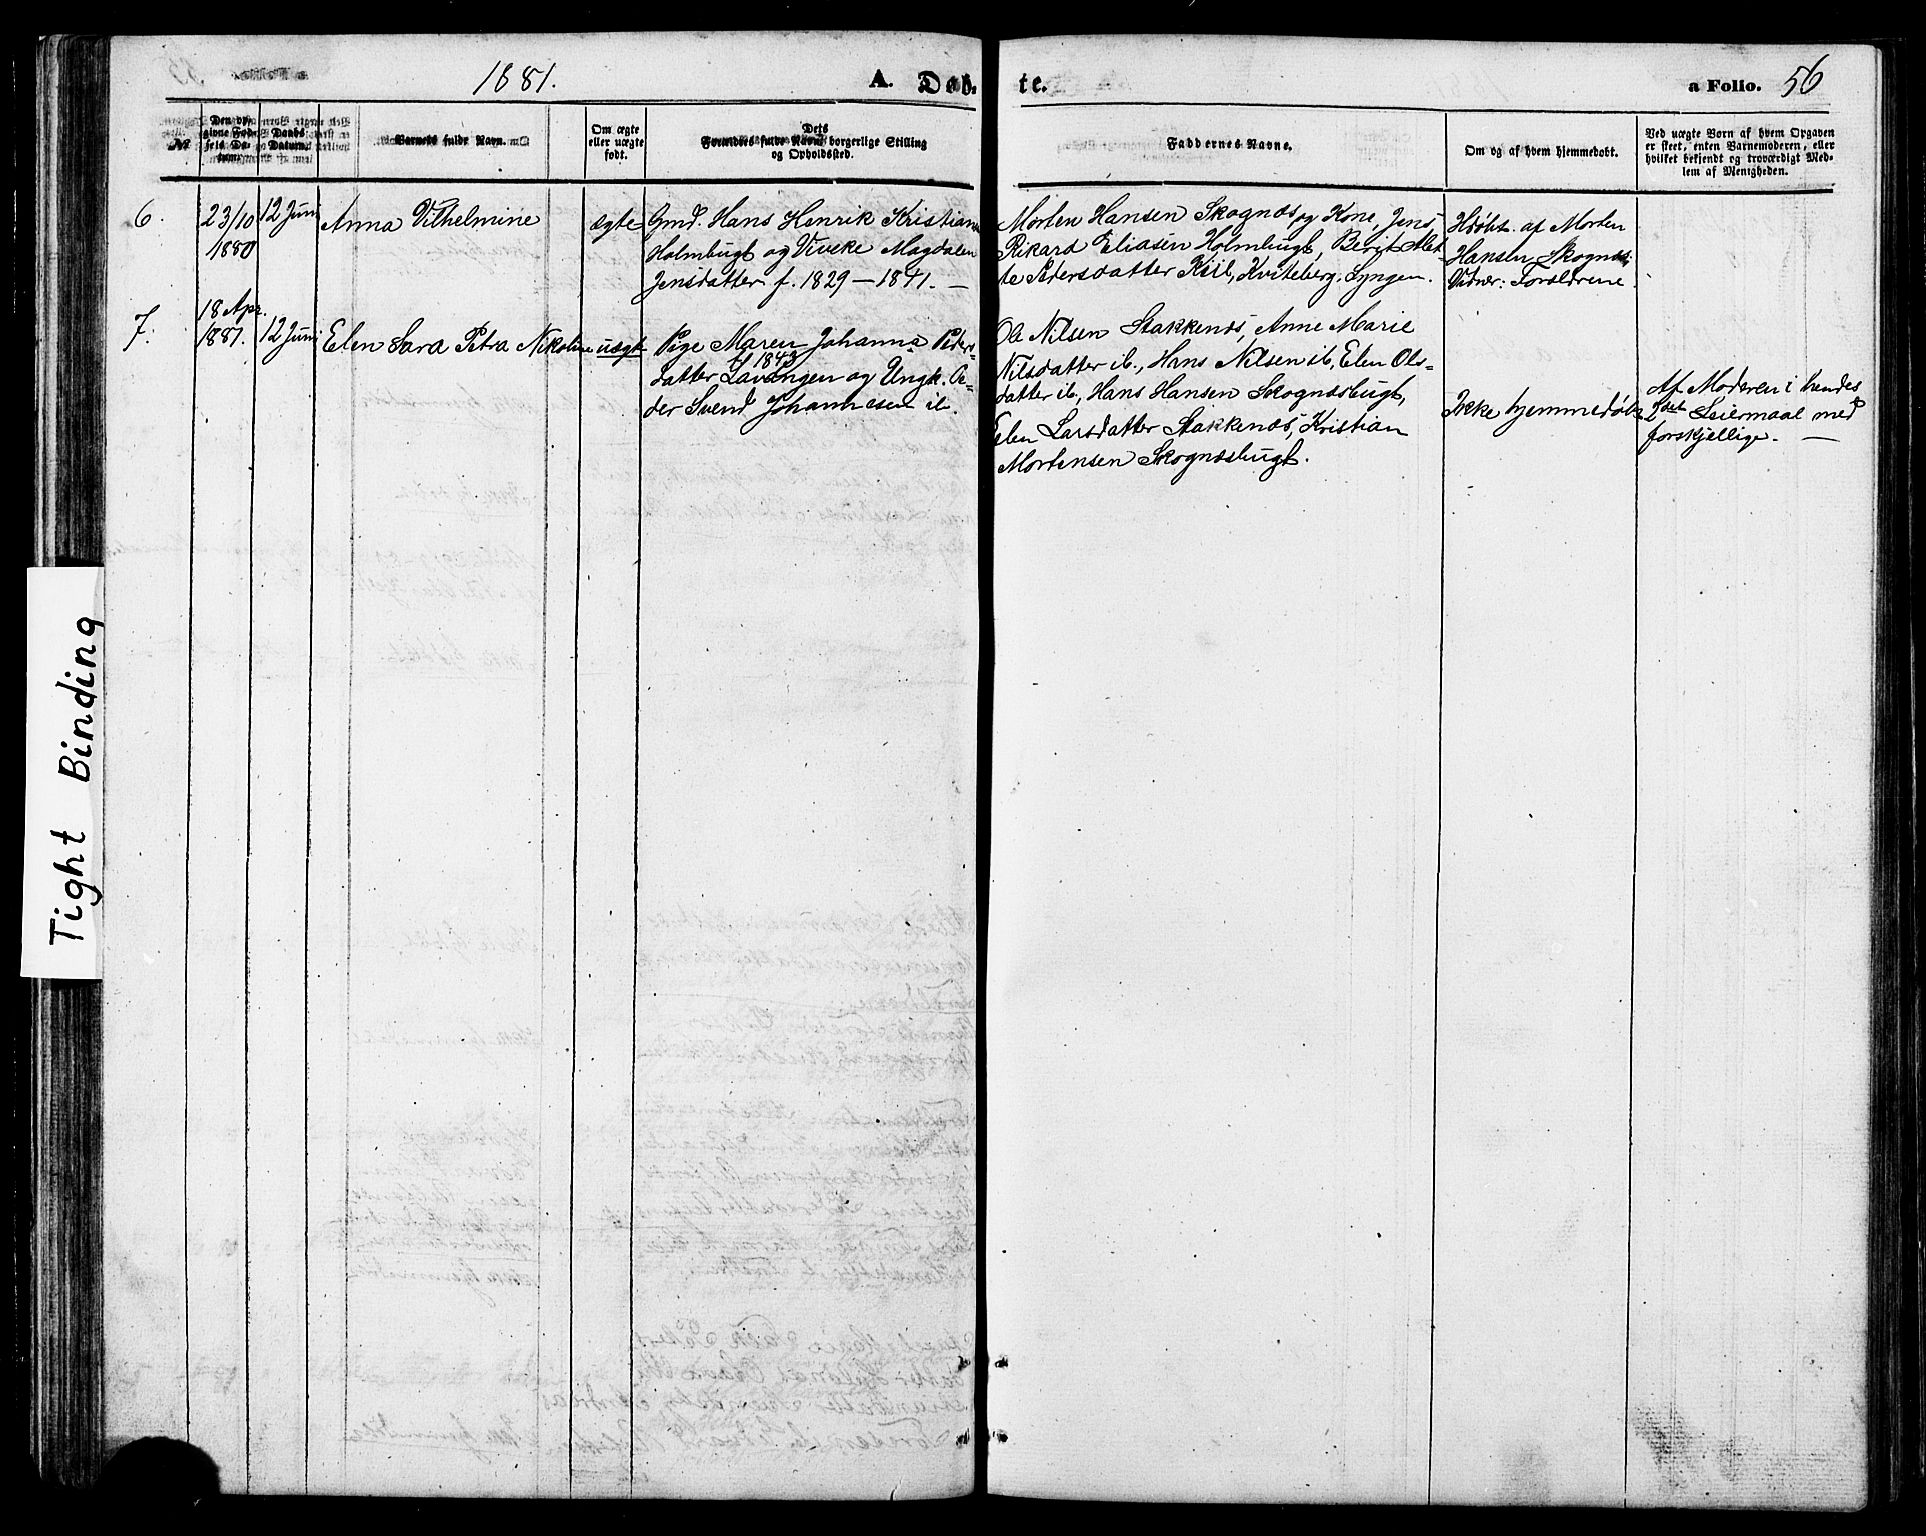 1881.
A. Døb-
te.
a Folio. 56
№
Den opgivne Fødsels Datum.
Daabs Datum.
Barnets fulde Navn.
Om ægte eller uægte født.
Dets Forældres fulde Navn, borgerlige Stilling og Opholdssted.
Faddernes Navne.
Om og af hvem hjemmedøbt.
Ved uægte Børn af hvem Opgaven er skeet, enten Barnemoderen, eller hvilket bekjendt og troværdigt Medlem af Menigheden.
6.
23/10
1880
12 Juni
Anna Vilhelmine
ægte
Gmd. Hans Henrik Kristian
Holmbugt og Viveke Magdalen
Jensdatter f. 1829 — 1841. —
Morten Hansen Skognæs og Kone, Jens
Rikard Eliasen Holmbugt, Berit Alet
te Pedersdatter Kiil, Kviteberg, Lyngen.
Hdøbt af Morten
Hansen Skognæs.
Vidner: Forældrene.
7.
18 Apr.
1881.
12 Juni
Elen Sara Petra Nikoline
uægt
Pige Maren Johanna Peders-
f. 1843
datter Lavangen og Ungk. Pe-
der Svend Johannesen ib.
Ole Nilsen Stakkenæs, Anne Marie
Nilsdatter ib., Hans Nilsen ib, Elen Ols-
datter ib, Hans Hansen Skognæsbugt,
Elen Larsdatter Stakkenæs, Kristian
Mortensen Skognæsbugt.
Ikke hjemmedøbt
Af Moderen i hendes
2det Leiermaal med
forskjellige. —
Tight Binding